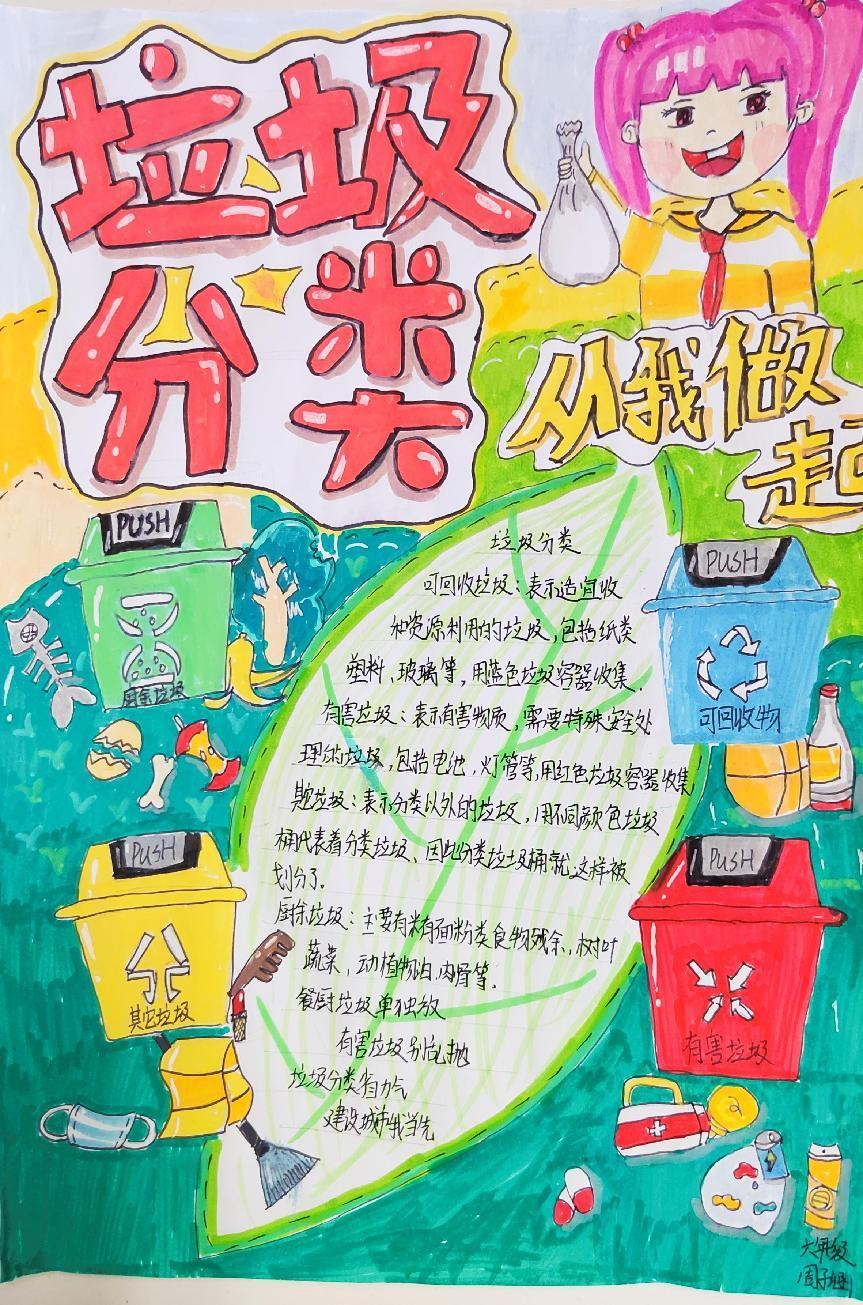 垃圾
分类
从我做
起
PUSH
厨余垃圾
垃圾分类
可回收垃圾：表示适宜收
和资源利用的垃圾，包括纸类
塑料，玻璃等，用蓝色垃圾容器收集.
有害垃圾：表示有害物质，需要特殊安全处
理的垃圾，包括电池，灯管等，用红色垃圾容器收集
垃圾：表示分类以外的垃圾，用不同颜色垃圾
桶代表着分类垃圾、因此分类垃圾桶就这样被
划分了.
厨余垃圾：主要有米有面粉类食物残余，树叶
蔬菜，动植物油，肉骨等.
餐厨垃圾单独放
有害垃圾别乱抛
垃圾分类省力气
建设城市我当先
PUSH
可回收物
PUSH
其它垃圾
PUSH
有害垃圾
六年级
周子